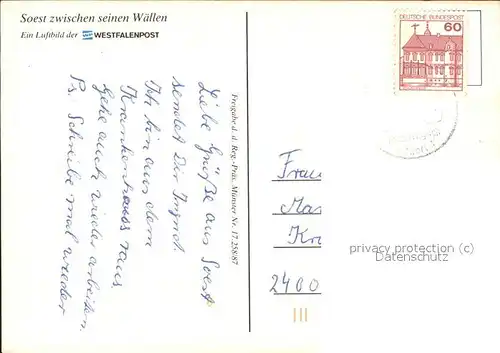 Soest zwischen seinen Wällen
Ein Luftbild der WESTFALENPOST
Liebe Grüße aus Soest
sendet Dir Ingrid.
Ich bin aus dem
Krankenhauss raus
Gehe auch wieder arbeiten.
Ps. Schreibe mal wieder
Freigabe d. d. Reg.-Präs. Münster Nr. 17 258/87
DEUTSCHE BUNDESPOST
60
Frau
Mar
Kr
2400
privacy protection (c)
Datenschutz